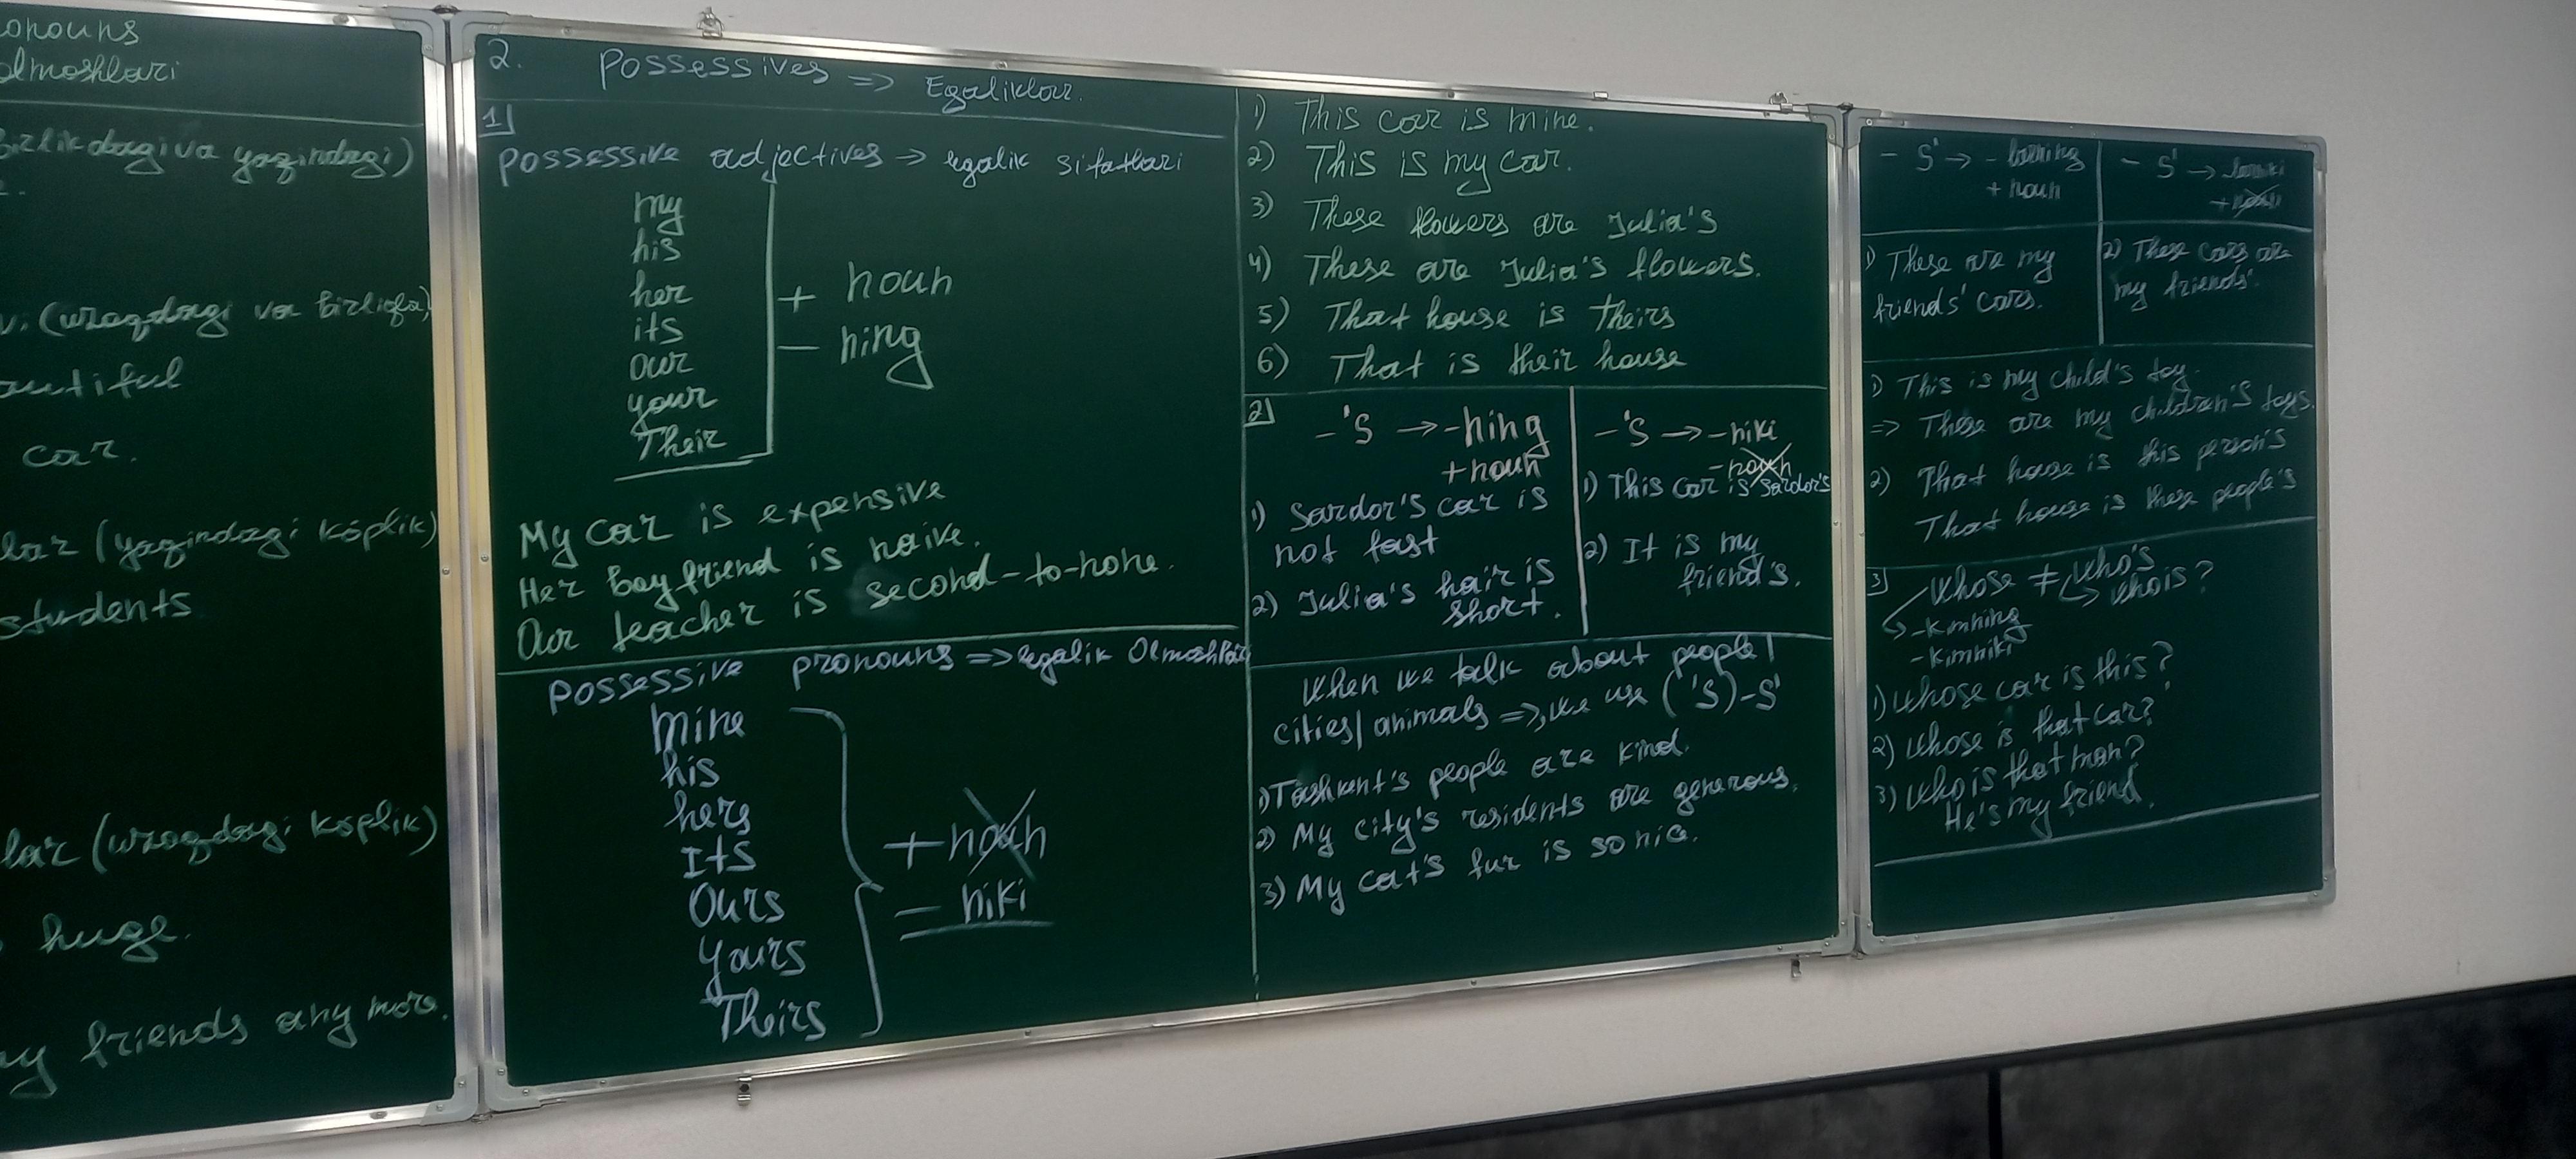 onouns
olmoshlari
birlikdagi va yaqindagi)
vi (uzoqdagi va birlikda)
autiful
car.
lar (yaqindagi ko'plik)
students
lar (uzoqdagi ko'plik)
huge.
my friends any more.
2. Possessives => Egaliklar.
1)
Possessive adjectives → egalik sifatlari
my
his
her
its
our
your
Their
+ noun
- ning
My car is expensive
Her boyfriend is naive.
Our teacher is second-to-none.
Possessive pronouns => egalik Olmoshlari
Mine
his
hers
Its
Ours
Yours
Theirs
+ noun
= niki
1) This car is mine.
2) This is my car.
3) These flowers are Julia's
4) These are Julia's flowers.
5) That house is theirs
6) That is their house
2)
-'s → -ning
+noun
1) Sardor's car is
not fast
2) Julia's hair is
short.
-'s → -niki
-noun
1) This car is Sardor's
2) It is my
friend's.
When we talk about people/
cities/animals =>, we use ('s)-s'
1) Tashkent's people are kind.
2) My city's residents are generous.
3) My cat's fur is so nice.
- s' → - larning
+ noun
1) These are my
friends' cars.
- s' → larniki
+ noun
2) These cars are
my friends'.
1) This is my child's toy.
=> These are my children's toys.
2) That house is this person's
That house is these people's
3) Whose ≠ who's
who is?
-Kimning
-Kimniki
1) Whose car is this?
2) Whose is that car?
3) Who is that man?
He's my friend.